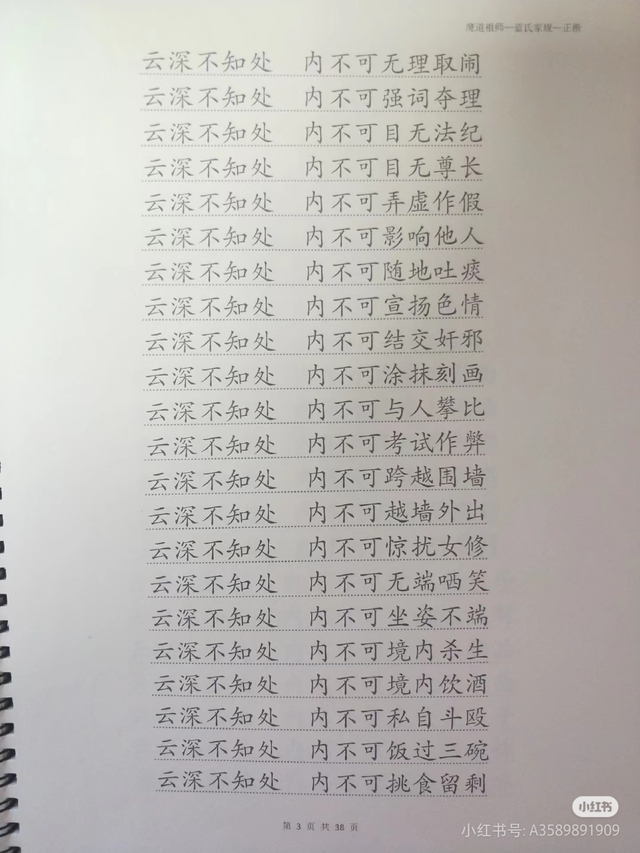 魔道祖师—蓝氏家规—正楷
云深不知处 内不可无理取闹
云深不知处 内不可强词夺理
云深不知处 内不可目无法纪
云深不知处 内不可目无尊长
云深不知处 内不可弄虚作假
云深不知处 内不可影响他人
云深不知处 内不可随地吐痰
云深不知处 内不可宣扬色情
云深不知处 内不可结交奸邪
云深不知处 内不可涂抹刻画
云深不知处 内不可与人攀比
云深不知处 内不可考试作弊
云深不知处 内不可跨越围墙
云深不知处 内不可越墙外出
云深不知处 内不可惊扰女修
云深不知处 内不可无端哂笑
云深不知处 内不可坐姿不端
云深不知处 内不可境内杀生
云深不知处 内不可境内饮酒
云深不知处 内不可私自斗殴
云深不知处 内不可饭过三碗
云深不知处 内不可挑食留剩
第 3 页 共 38 页
小红书
小红书号: A3589891909